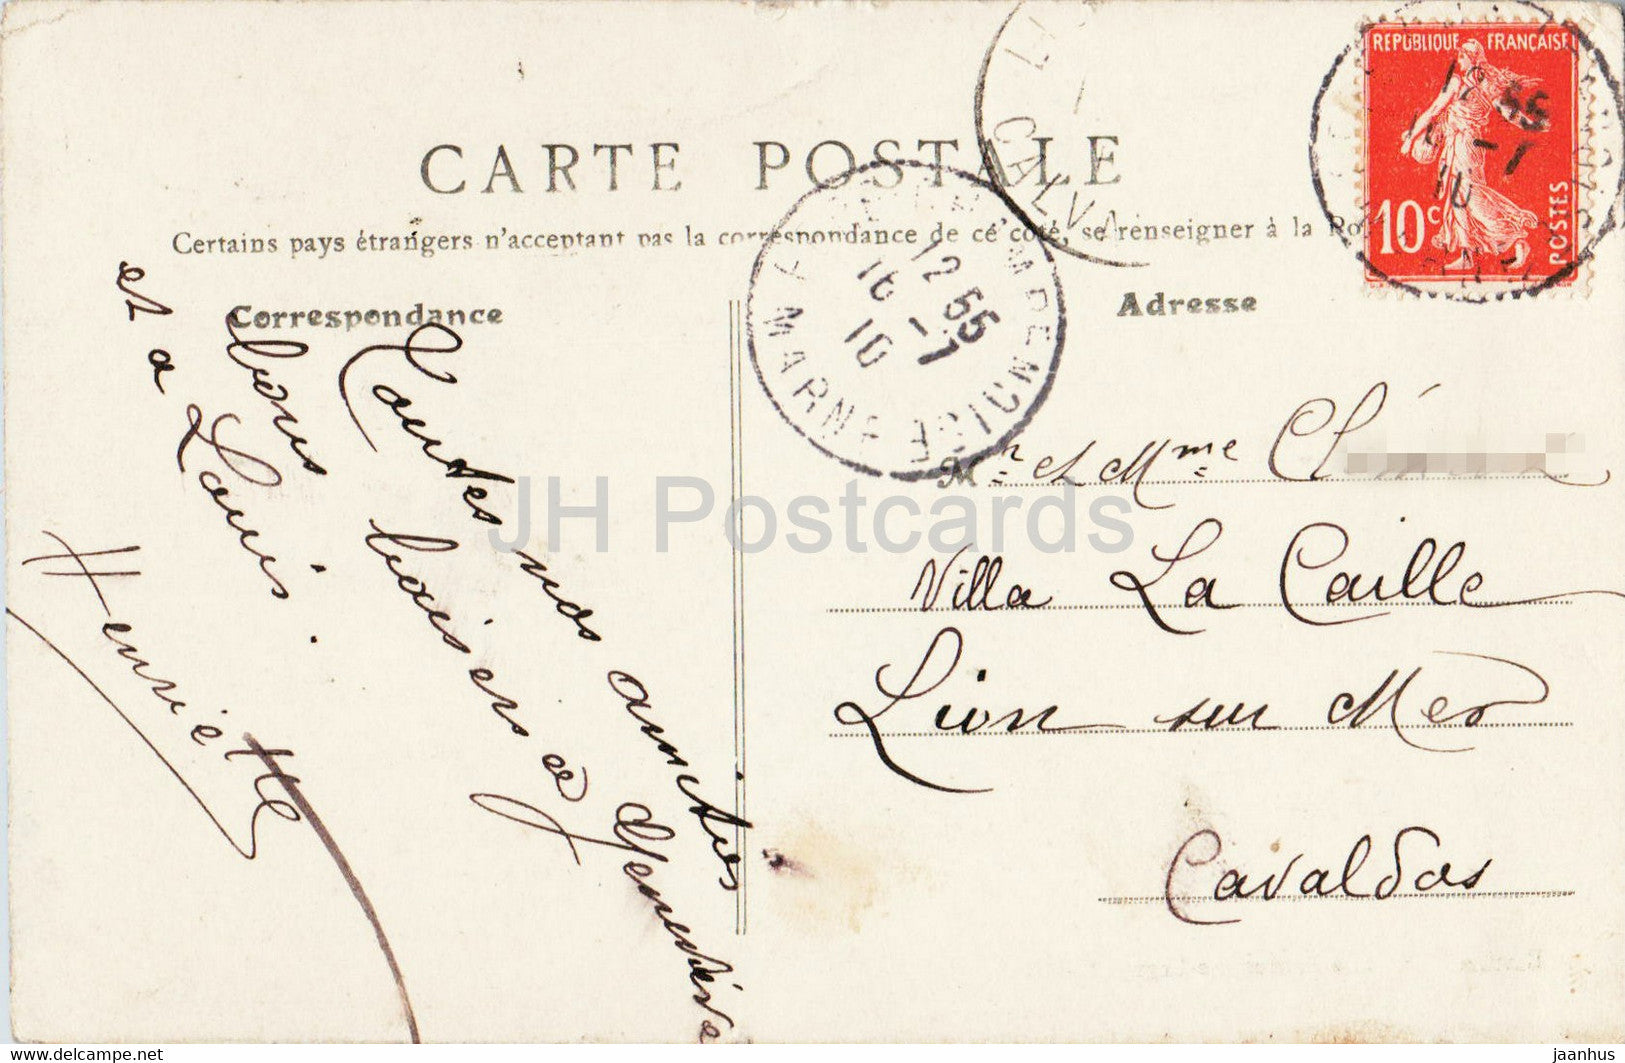 CARTE POSTALE
Certains pays étrangers n'acceptant pas la correspondance de ce côté, se renseigner à la
Correspondance
Adresse
RÉPUBLIQUE FRANÇAISE
10c
POSTES
12 55
16 -7
10
MARNE
12 55
16 -7
10
CALV
Toutes nos amitiés
bons baisers à Geneviève
et à Louis.
Henriette
Mr et Mme
Villa La Caille
Lion sur Mer
Cavaldos
JH Postcards
www.delcampe.net
jaanhus